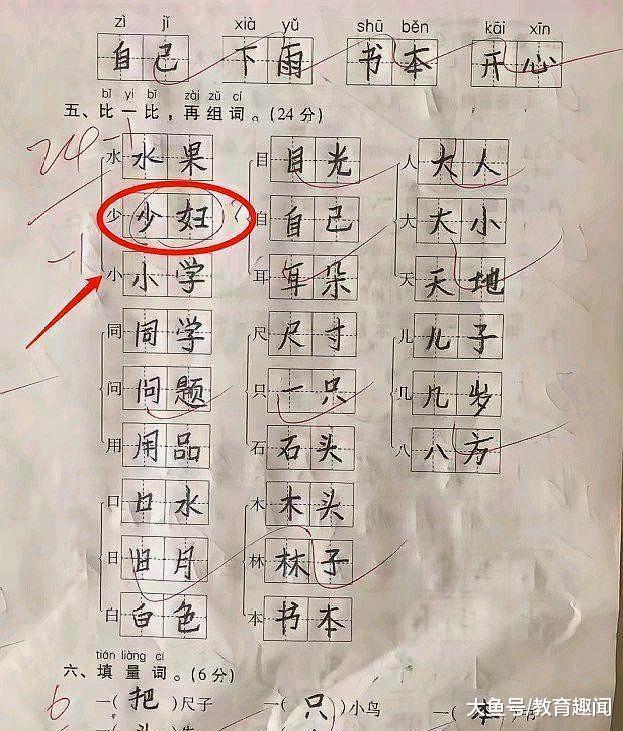 zì jǐ xià yǔ shū běn kāi xīn
自己 下雨 书本 开心
bǐ yi bǐ zài zǔ cí
五、比一比,再组词。(24分)
24-1
水 水果 目 目光 人 大人
少 少妇 ? 自 自己 大 大小
-1
小 小学 耳 耳朵 天 天地
同 同学 尺 尺寸 儿 儿子
问 问题 只 一只 几 几岁
用 用品 石 石头 八 八方
口 口水 木 木头
日 旧月 林 林子
白 白色 本 书本
tián liàng cí
六、填量词。(6分)
6
一(把)尺子 一(只)小鸟 一(本)书
大鱼号/教育趣闻